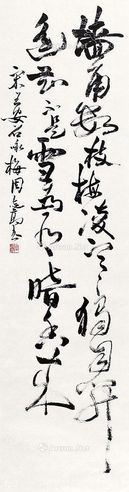 墙角数枝梅凌寒独自开
遥知不是雪为有暗香来
宋王安石咏梅周